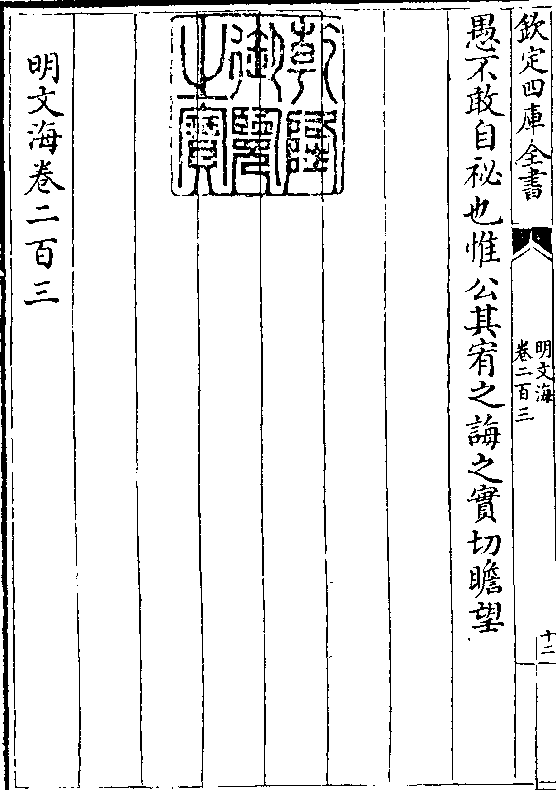 欽定四庫全書
明文海
卷二百三
十二
愚不敢自祕也惟公其宥之誨之實切瞻望
乾隆御覽之寶
明文海卷二百三